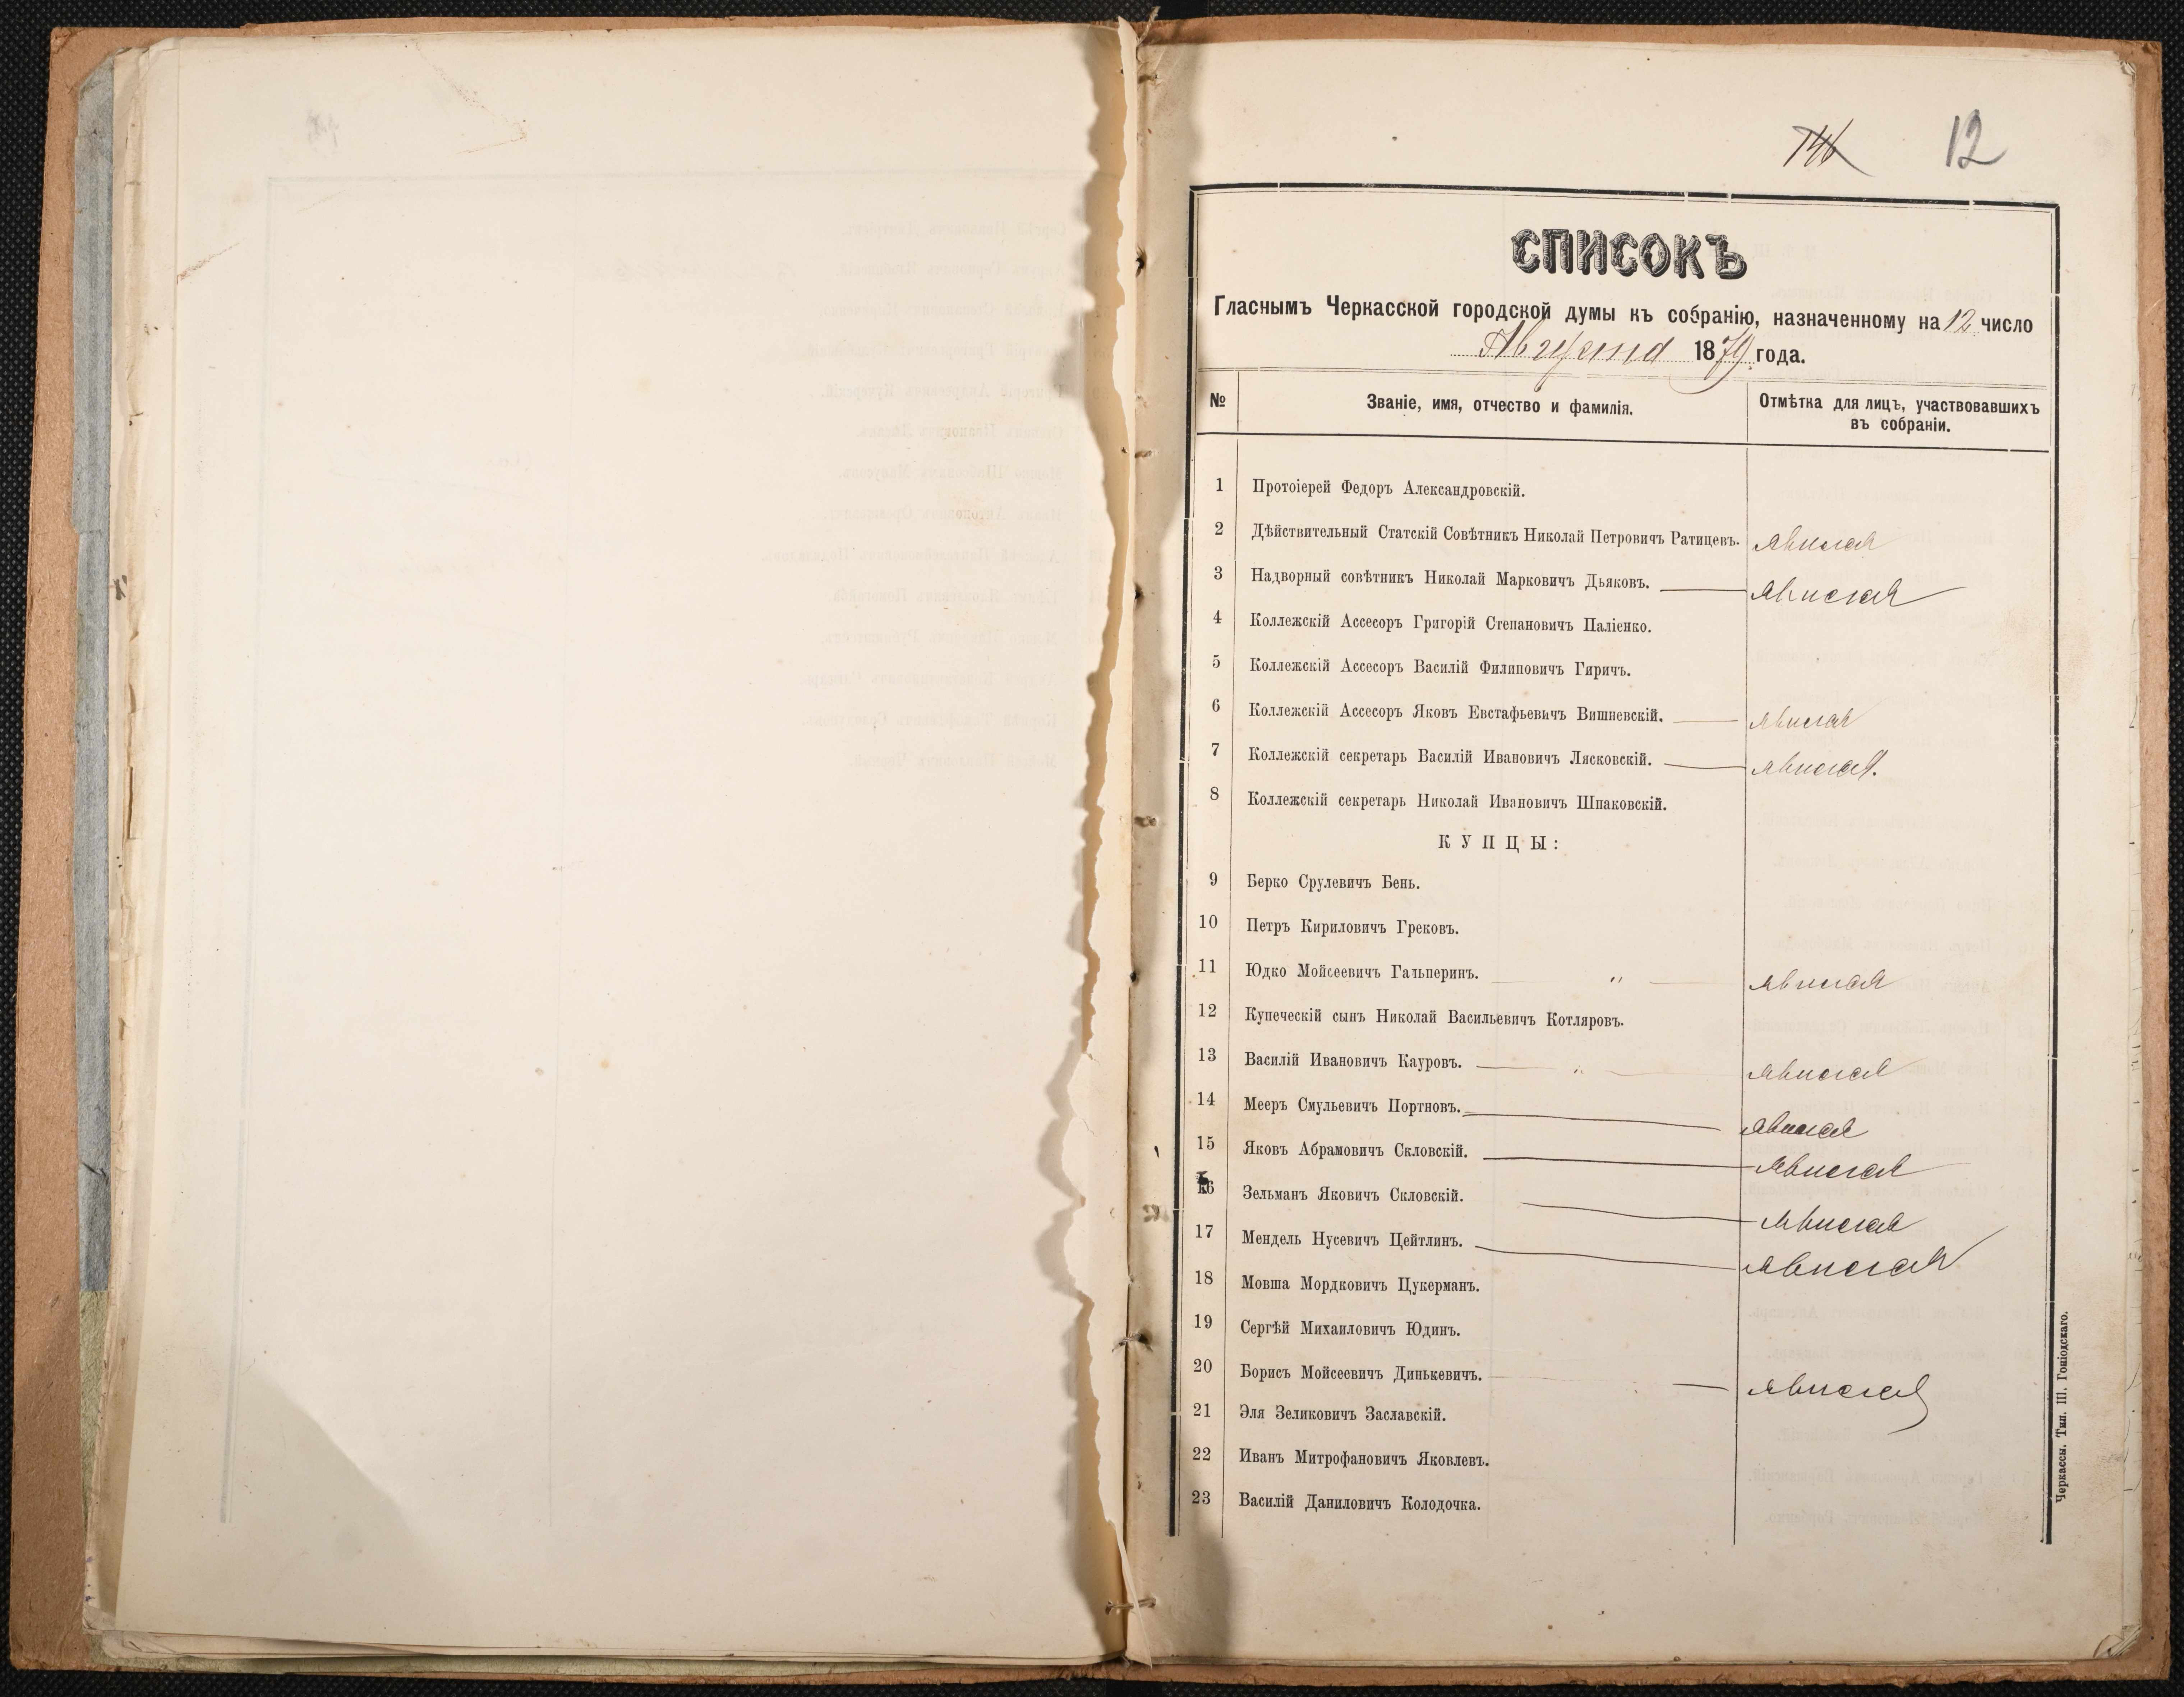 146 12
СПИСОКЪ
Гласнымъ Черкасской городской думы къ собранію, назначенному на 12 число
Августа 1879 года.
№ Званіе, имя, отчество и фамилія. Отмѣтка для лицъ, участвовавшихъ
въ собраніи.
1 Протоіерей Федоръ Александровскій.
2 Дѣйствительный Статскій Совѣтникъ Николай Петровичъ Ратицевъ. явился
3 Надворный совѣтникъ Николай Марковичъ Дьяковъ. явился
4 Коллежскій Ассесоръ Григорій Степановичъ Паліенко.
5 Коллежскій Ассесоръ Василій Филиповичъ Гиричъ.
6 Коллежскій Ассесоръ Яковъ Евстафьевичъ Вишневскій. явился
7 Коллежскій секретарь Василій Ивановичъ Лясковскій. явился.
8 Коллежскій секретарь Николай Ивановичъ Шпаковскій.
КУПЦЫ:
9 Берко Срулевичъ Бень.
10 Петръ Кириловичъ Грековъ.
11 Юдко Мойсеевичъ Гальперинъ. „ явился
12 Купеческій сынъ Николай Васильевичъ Котляровъ.
13 Василій Ивановичъ Кауровъ. „ явился
14 Мееръ Смульевичъ Портновъ. явился
15 Яковъ Абрамовичъ Скловскій. явился
16 Зельманъ Яковичъ Скловскій. явился
17 Мендель Нусевичъ Цейтлинъ. явился
18 Мовша Мордковичъ Цукерманъ.
19 Сергѣй Михаиловичъ Юдинъ.
20 Борисъ Мойсеевичъ Динькевичъ. явился
21 Эля Зеликовичъ Заславскій.
22 Иванъ Митрофановичъ Яковлевъ.
23 Василій Даниловичъ Колодочка.
Черкассы. Тип. Ш. Гоніодскаго.